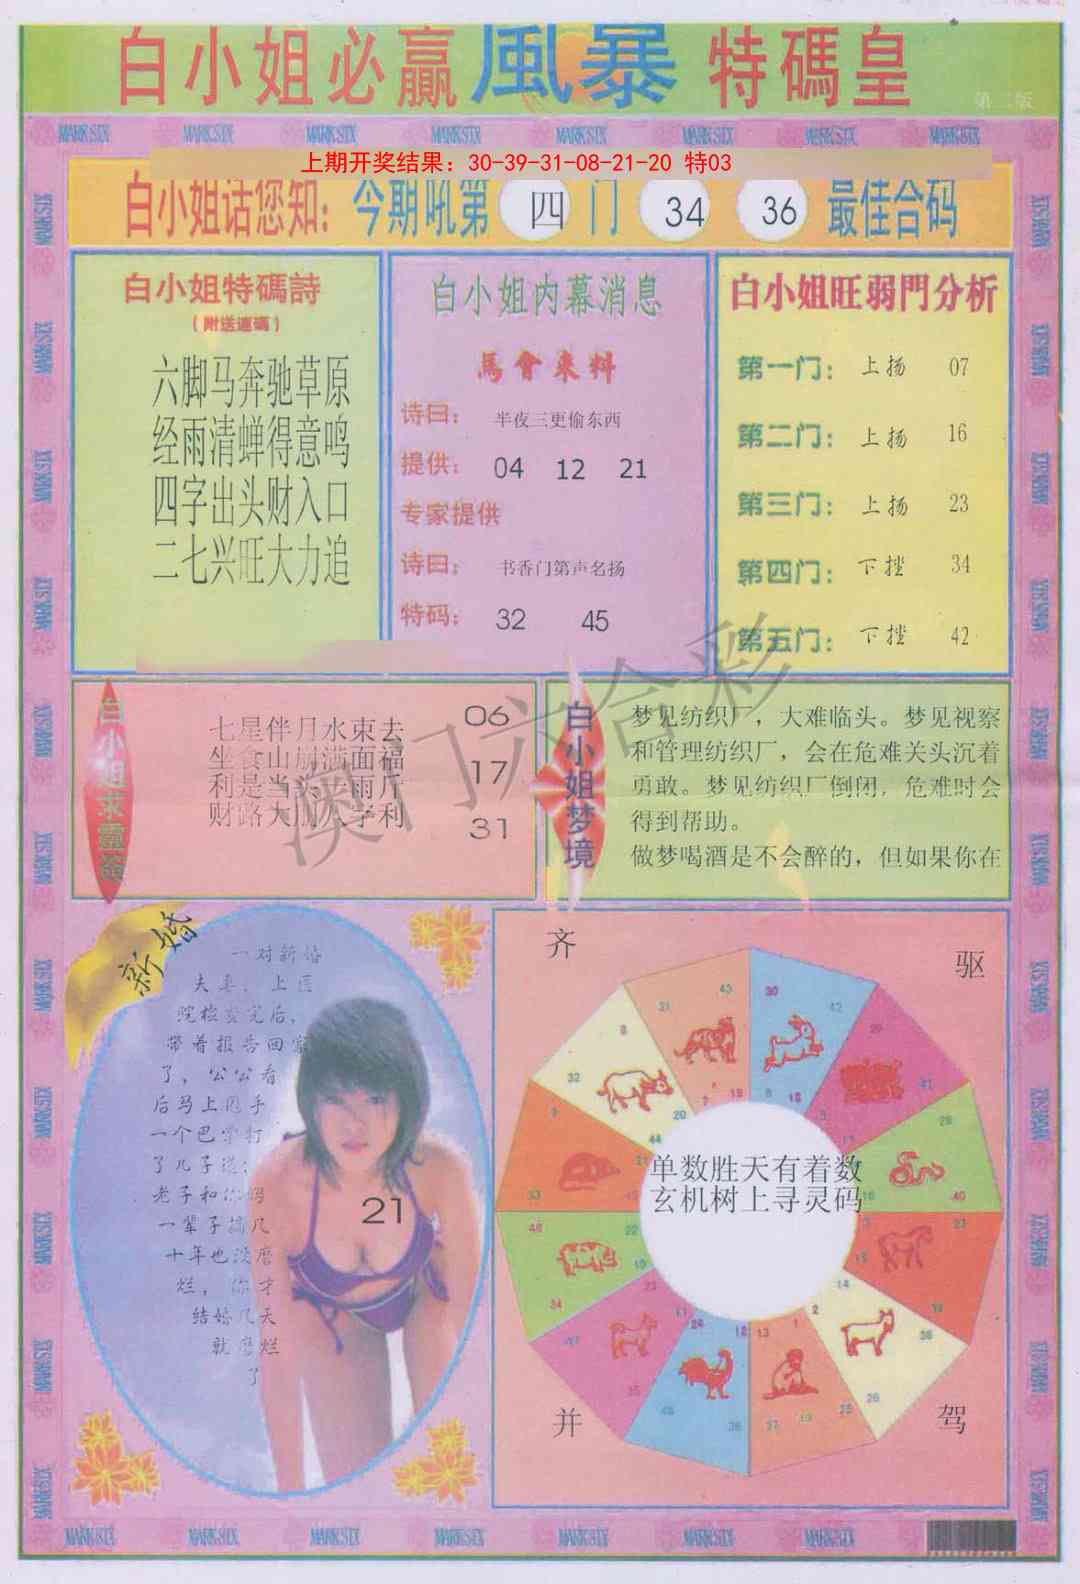 白小姐必赢風暴特碼皇
第二版
MARK SIX MARK SIX MARK SIX MARK SIX MARK SIX MARK SIX MARK SIX MARK SIX
上期开奖结果：30-39-31-08-21-20 特03
白小姐话您知：今期吼第 四 门 34 36 最佳合码
白小姐特碼詩
（附送連碼）
六脚马奔驰草原
经雨清蝉得意鸣
四字出头财入口
二七兴旺大力追
白小姐内幕消息
馬會来料
诗曰： 半夜三更偷东西
提供： 04 12 21
专家提供
诗曰： 书香门第声名扬
特码： 32 45
白小姐旺弱門分析
第一门： 上扬 07
第二门： 上扬 16
第三门： 上扬 23
第四门： 下挫 34
第五门： 下挫 42
白小姐求靈簽
七星伴月水東去
坐食山崩满面福
利是当头 雨斤
财路大 利
06
17
31
白小姐梦境
梦见纺织厂，大难临头。梦见视察
和管理纺织厂，会在危难关头沉着
勇敢。梦见纺织厂倒闭，危难时会
得到帮助。
做梦喝酒是不会醉的，但如果你在
澳门六合彩
新婚
一对新婚
夫妻，上医
院检查完后，
带着报告回家
了，公公看
后马上甩手
一个巴掌打
了儿子道：
老子和你妈
一辈子搞几
十年也没磨
烂，你才
结婚几天
就磨烂
了
21
齐
驱
并
驾
单数胜天有着数
玄机树上寻灵码
MARK SIX MARK SIX MARK SIX MARK SIX MARK SIX MARK SIX MARK SIX